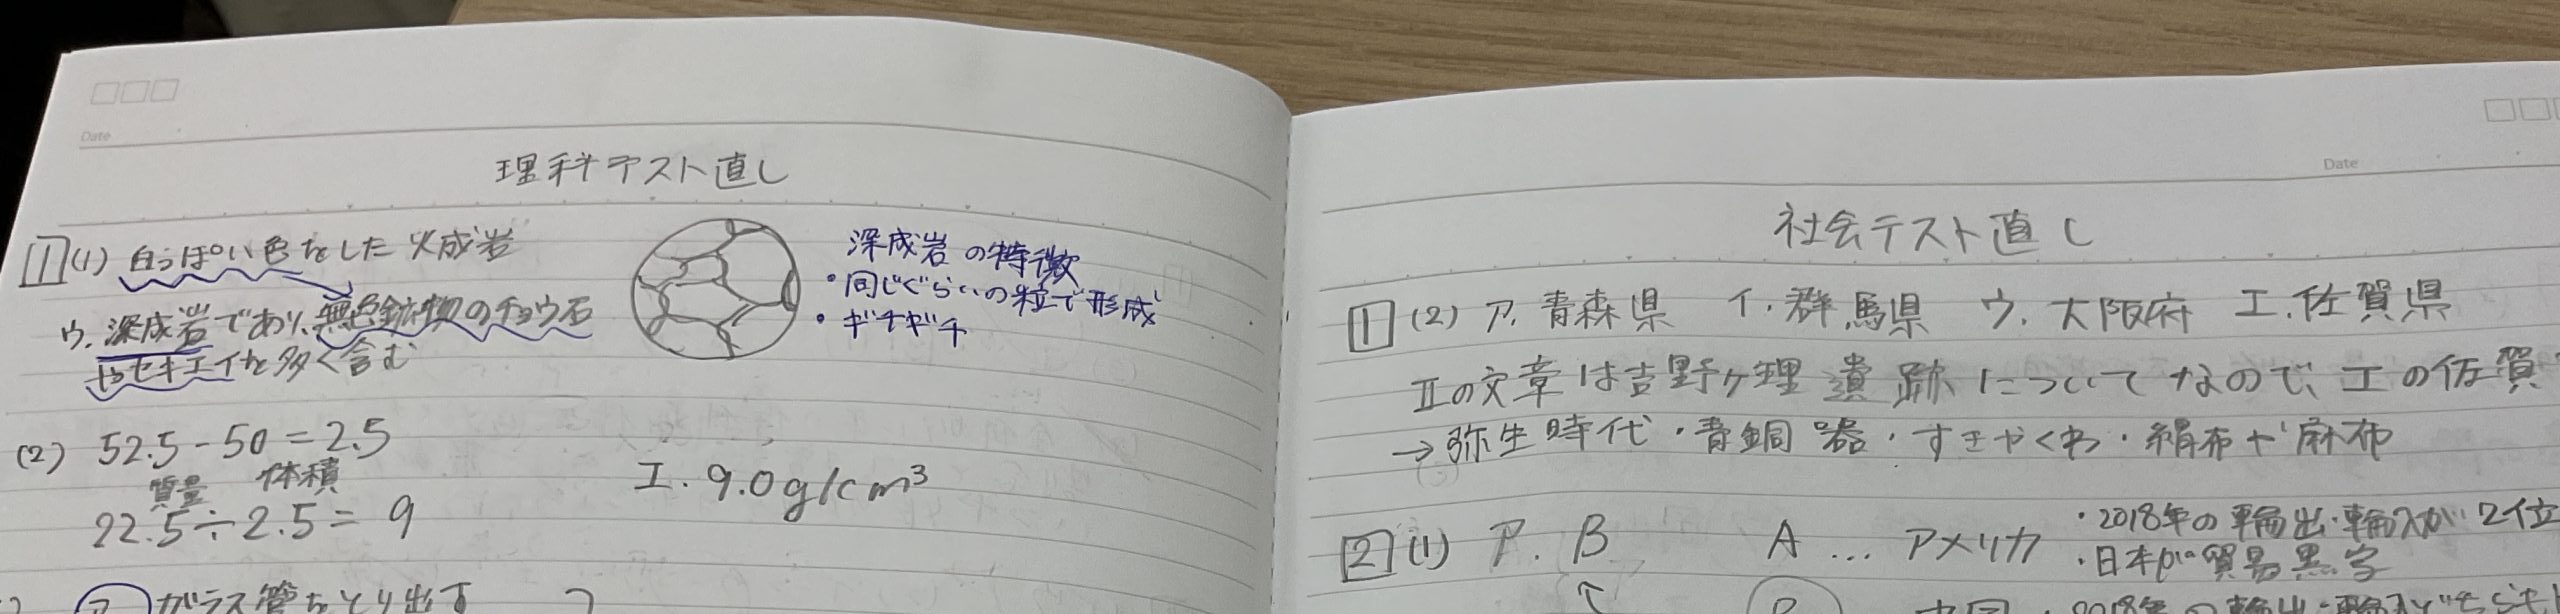 Date
理科テスト直し
1 (1) 白っぽい色をした火成岩
ウ. 深成岩であり、無色鉱物のチョウ石
やセキエイを多く含む
深成岩の特徴
・同じぐらいの粒で形成
・ギチギチ
(2) 52.5-50=2.5
質量 体積
22.5÷2.5=9
エ. 9.0g/cm³
ア ガラス管をとり出す
Date
社会テスト直し
1 (2) ア. 青森県 イ. 群馬県 ウ. 大阪府 エ. 佐賀県
Ⅱの文章は吉野ヶ理遺跡についてなので、エの佐賀
→弥生時代・青銅器・すきやくわ・絹布や麻布
2 (1) ア. B
A … アメリカ
・2018年の輸出・輸入が2位
・日本が貿易黒字
↑
B 中国・2018年の輸出・輸入どちも